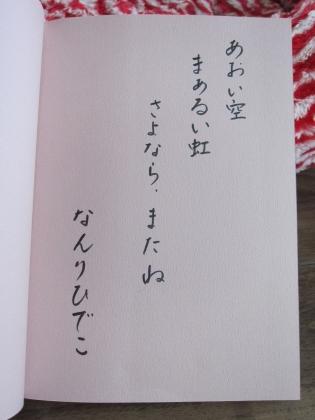 あおい空
まあるい虹
さよなら、またね
なんりひでこ